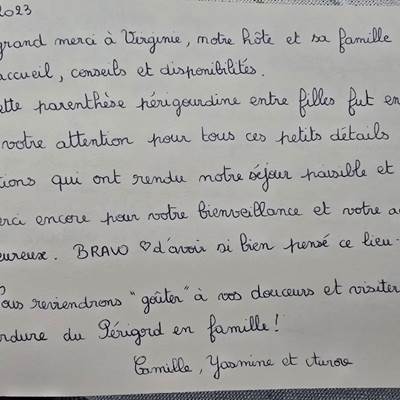 2023
grand merci à Virginie, notre hôte et sa famille
accueil, conseils et disponibilités.
ette parenthèse périgourdine entre filles fut en
votre attention pour tous ces petits détails
tions qui ont rendu notre séjour paisible et
erci encore pour votre bienveillance et votre a
eureux. BRAVO ♡ d'avoir si bien pensé ce lieu.
Nous reviendrons "goûter" à vos douceurs et visiter
rdure du Périgord en famille!
Camille, Yasmine et Aurore